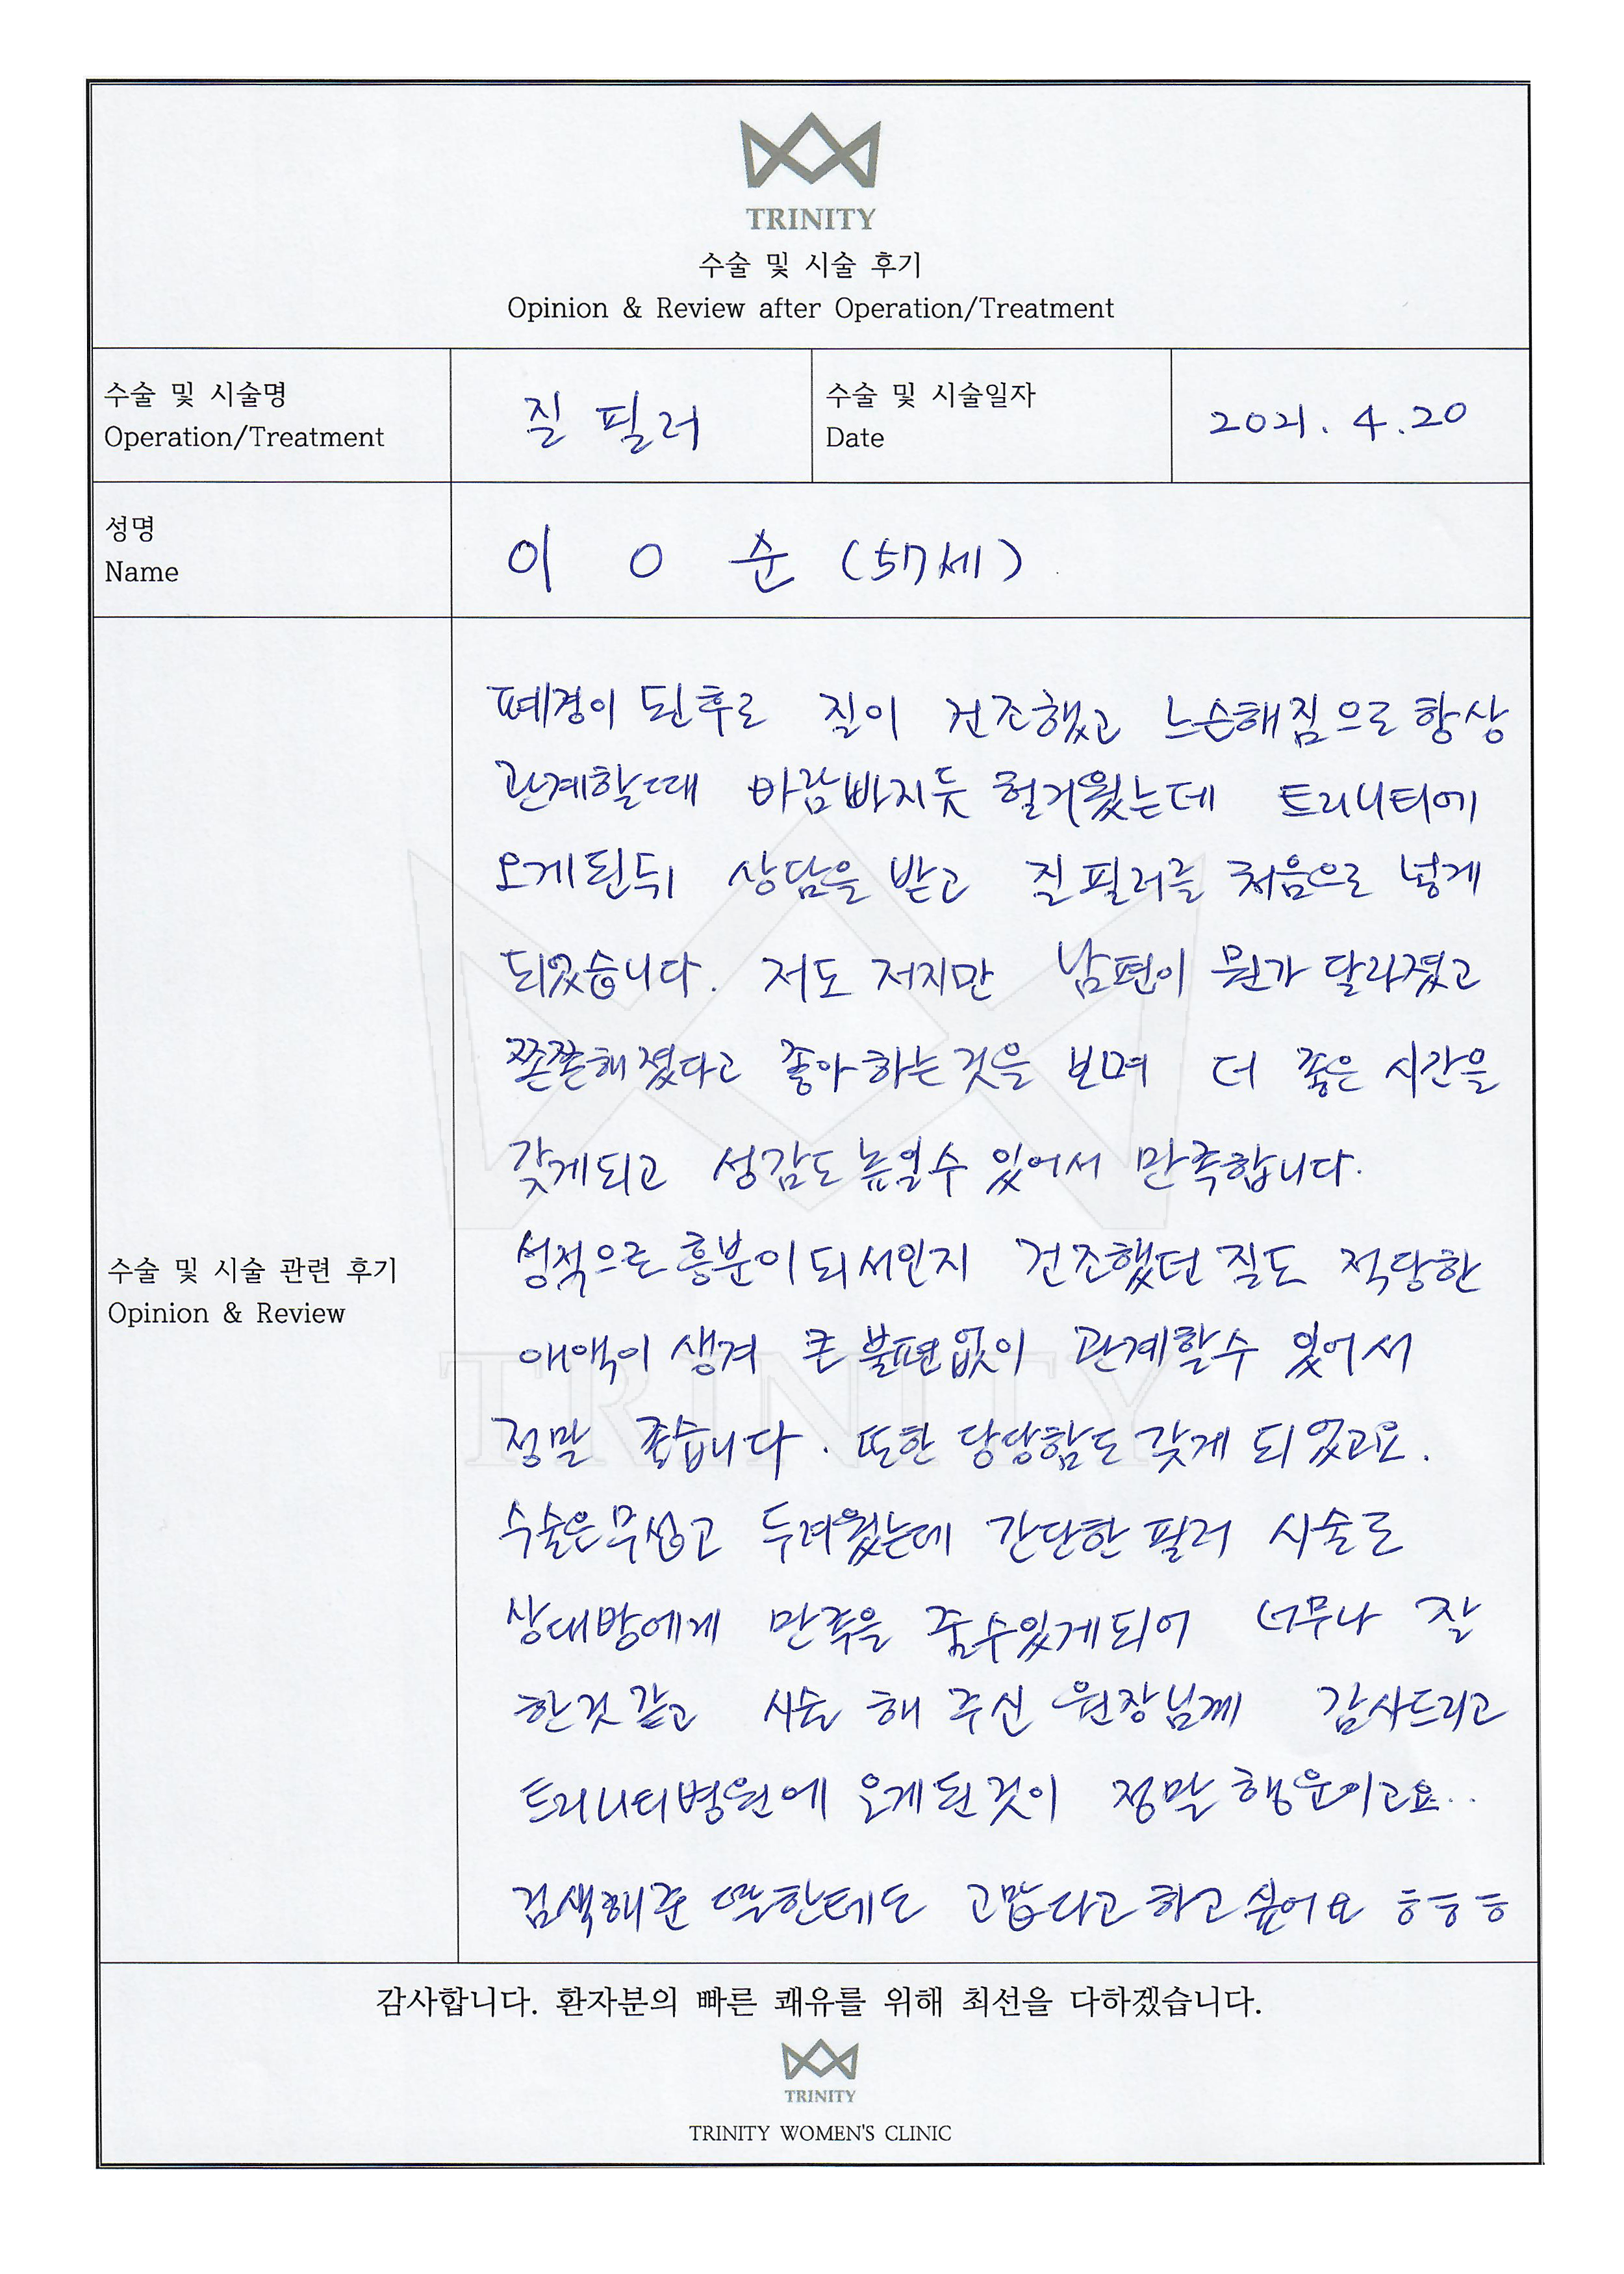 TRINITY
수술 및 시술 후기
Opinion & Review after Operation/Treatment
수술 및 시술명
Operation/Treatment
질 필러
수술 및 시술일자
Date
2021. 4. 20
성명
Name
이 O 순 (57세)
수술 및 시술 관련 후기
Opinion & Review
폐경이 된후로 질이 건조했고 느슨해짐으로 항상
관계할때 바람빠지듯 헐거웠는데 트리니티에
오게된뒤 상담을 받고 질필러를 처음으로 넣게
되었습니다. 저도 저지만 남편이 뭔가 달라졌고
쫀쫀해졌다고 좋아하는것을 보며 더 좋은 시간을
갖게되고 성감도 높일수 있어서 만족합니다.
성적으로 흥분이 되서인지 건조했던 질도 적당한
애액이 생겨 큰 불편없이 관계할수 있어서
정말 좋습니다. 또한 당당함도 갖게 되었고요.
수술은 무섭고 두려웠는데 간단한 필러 시술로
상대방에게 만족을 줄수있게되어 너무나 잘
한것 같고 시술 해 주신 원장님께 감사드리고
트리니티병원에 오게된것이 정말 행운이고요..
검색해준 딸한테도 고맙다고 하고 싶어요 ㅎㅎㅎ
감사합니다. 환자분의 빠른 쾌유를 위해 최선을 다하겠습니다.
TRINITY
TRINITY WOMEN'S CLINIC
TRINITY